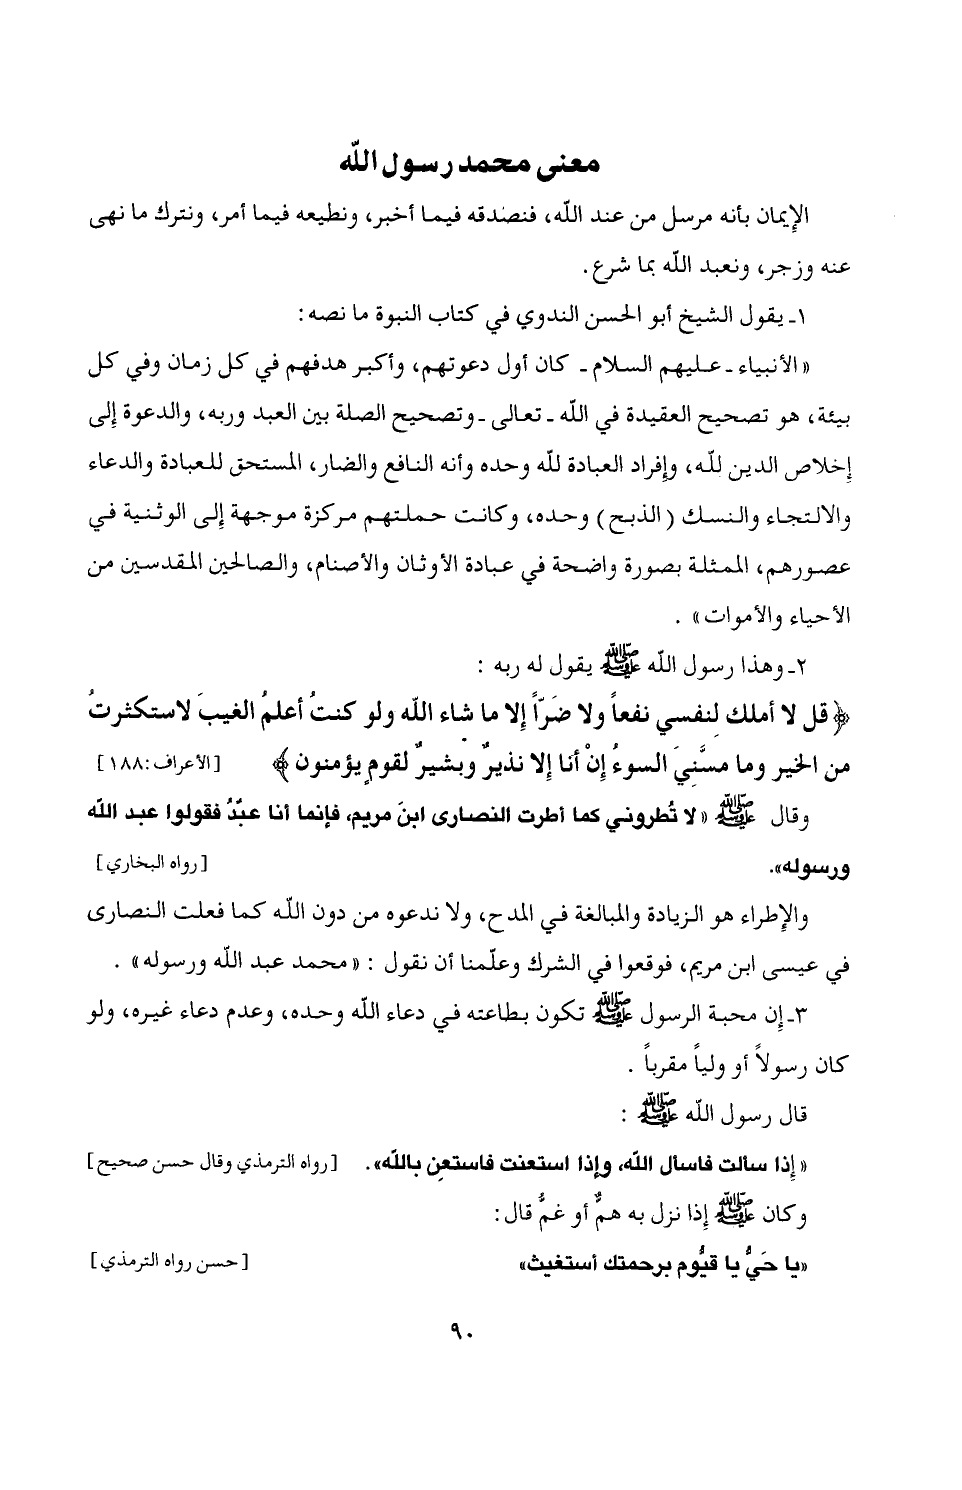 معنى محمد رسول الله
الإيمان بأنه مرسل من عند الله، فنصدقه فيما أخبر، ونطيعه فيما أمر، ونترك ما نهى
عنه وزجر، ونعبد الله بما شرع.
١ـ يقول الشيخ أبو الحسن الندوي في كتاب النبوة ما نصه:
«الأنبياء ـ عليهم السلام ـ كان أول دعوتهم، وأكبر هدفهم في كل زمان وفي كل
بيئة، هو تصحيح العقيدة في الله ـ تعالى ـ وتصحيح الصلة بين العبد وربه، والدعوة إلى
إخلاص الدين لله، وإفراد العبادة لله وحده وأنه النافع والضار، المستحق للعبادة والدعاء
والالتجاء والنسك (الذبح) وحده، وكانت حملتهم مركزة موجهة إلى الوثنية في
عصورهم، الممثلة بصورة واضحة في عبادة الأوثان والأصنام، والصالحين المقدسين من
الأحياء والأموات» .
٢ـ وهذا رسول الله ﷺ يقول له ربه :
﴿قل لا أملك لنفسي نفعاً ولا ضَرّاً إلا ما شاء الله ولو كنتُ أعلمُ الغيبَ لاستكثرتُ
من الخير وما مسَّنيَ السوءُ إنْ أنا إلا نذيرٌ وبشيرٌ لقومٍ يؤمنون﴾ [الأعراف:١٨٨]
وقال ﷺ «لا تُطروني كما أطرت النصارى ابنَ مريم، فإنما أنا عبّدٌ فقولوا عبد الله
ورسوله». [رواه البخاري]
والإطراء هو الزيادة والمبالغة في المدح، ولا ندعوه من دون الله كما فعلت النصارى
في عيسى ابن مريم، فوقعوا في الشرك وعلّمنا أن نقول : «محمد عبد الله ورسوله» .
٣ـ إن محبة الرسول ﷺ تكون بطاعته في دعاء الله وحده، وعدم دعاء غيره، ولو
كان رسولاً أو ولياً مقرباً .
قال رسول الله ﷺ :
«إذا سألت فاسأل الله، وإذا استعنت فاستعِن بالله». [رواه الترمذي وقال حسن صحيح]
وكان ﷺ إذا نزل به همٌّ أو غمٌّ قال:
«يا حَيُّ يا قيُّوم برحمتك أستغيث» [حسن رواه الترمذي]
٩٠